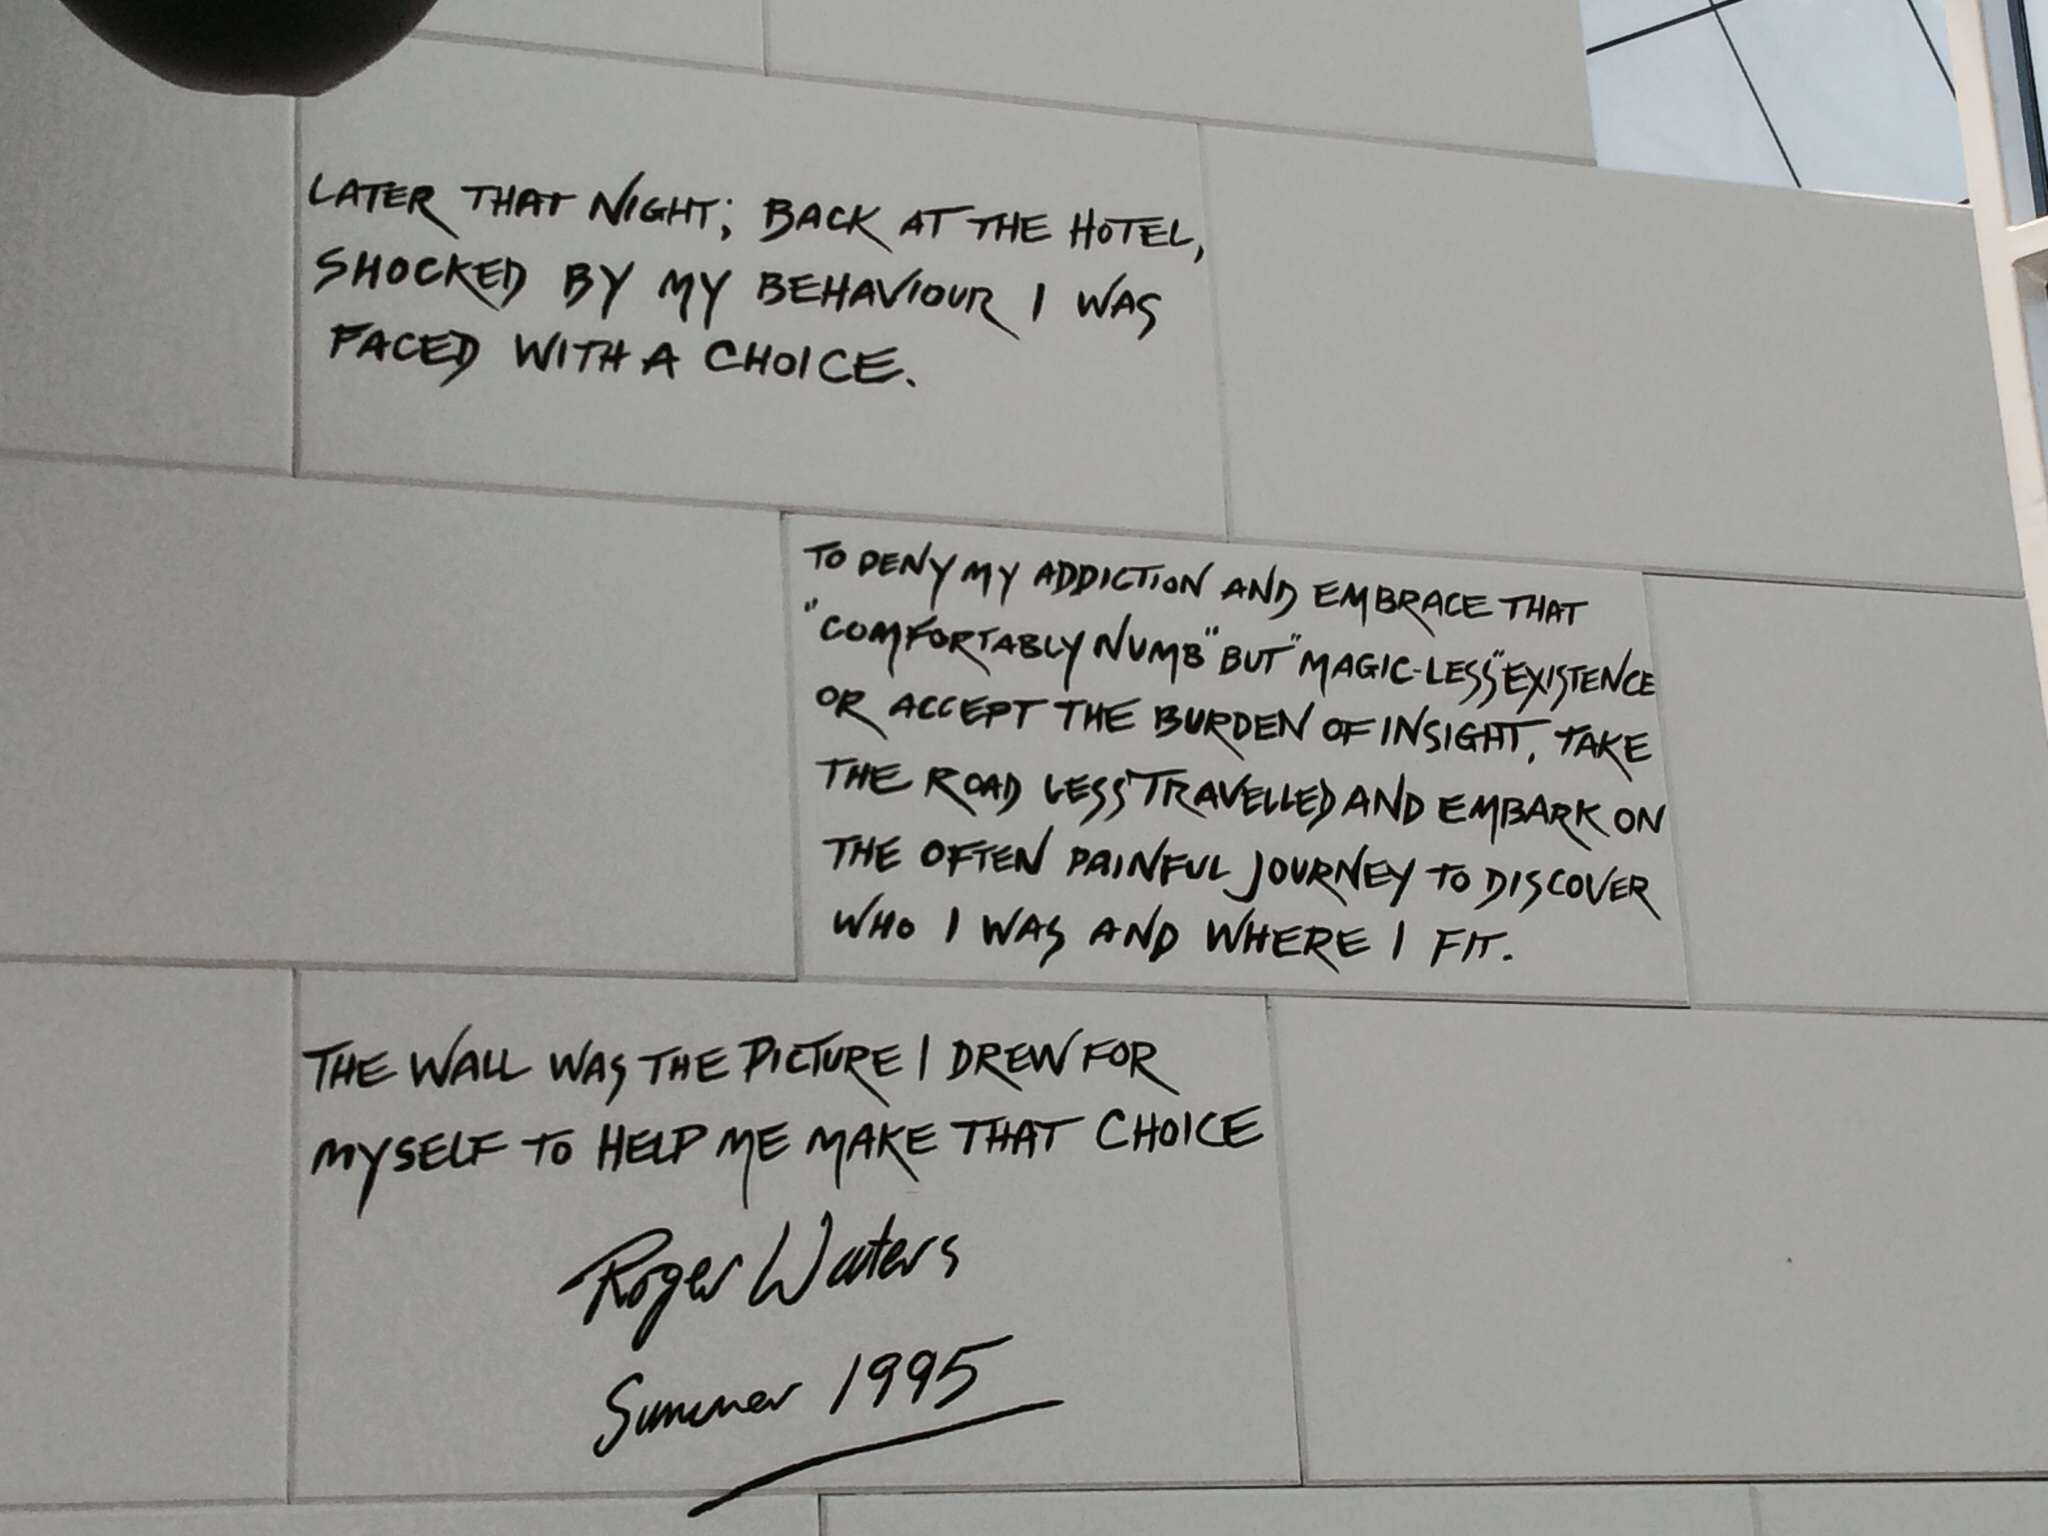 LATER THAT NIGHT; BACK AT THE HOTEL,
SHOCKED BY MY BEHAVIOUR I WAS
FACED WITH A CHOICE.
TO DENY MY ADDICTION AND EMBRACE THAT
"COMFORTABLY NUMB" BUT "MAGIC-LESS" EXISTENCE
OR ACCEPT THE BURDEN OF INSIGHT, TAKE
THE ROAD LESS TRAVELLED AND EMBARK ON
THE OFTEN PAINFUL JOURNEY TO DISCOVER
WHO I WAS AND WHERE I FIT.
THE WALL WAS THE PICTURE I DREW FOR
MYSELF TO HELP ME MAKE THAT CHOICE
Roger Waters
Summer 1995